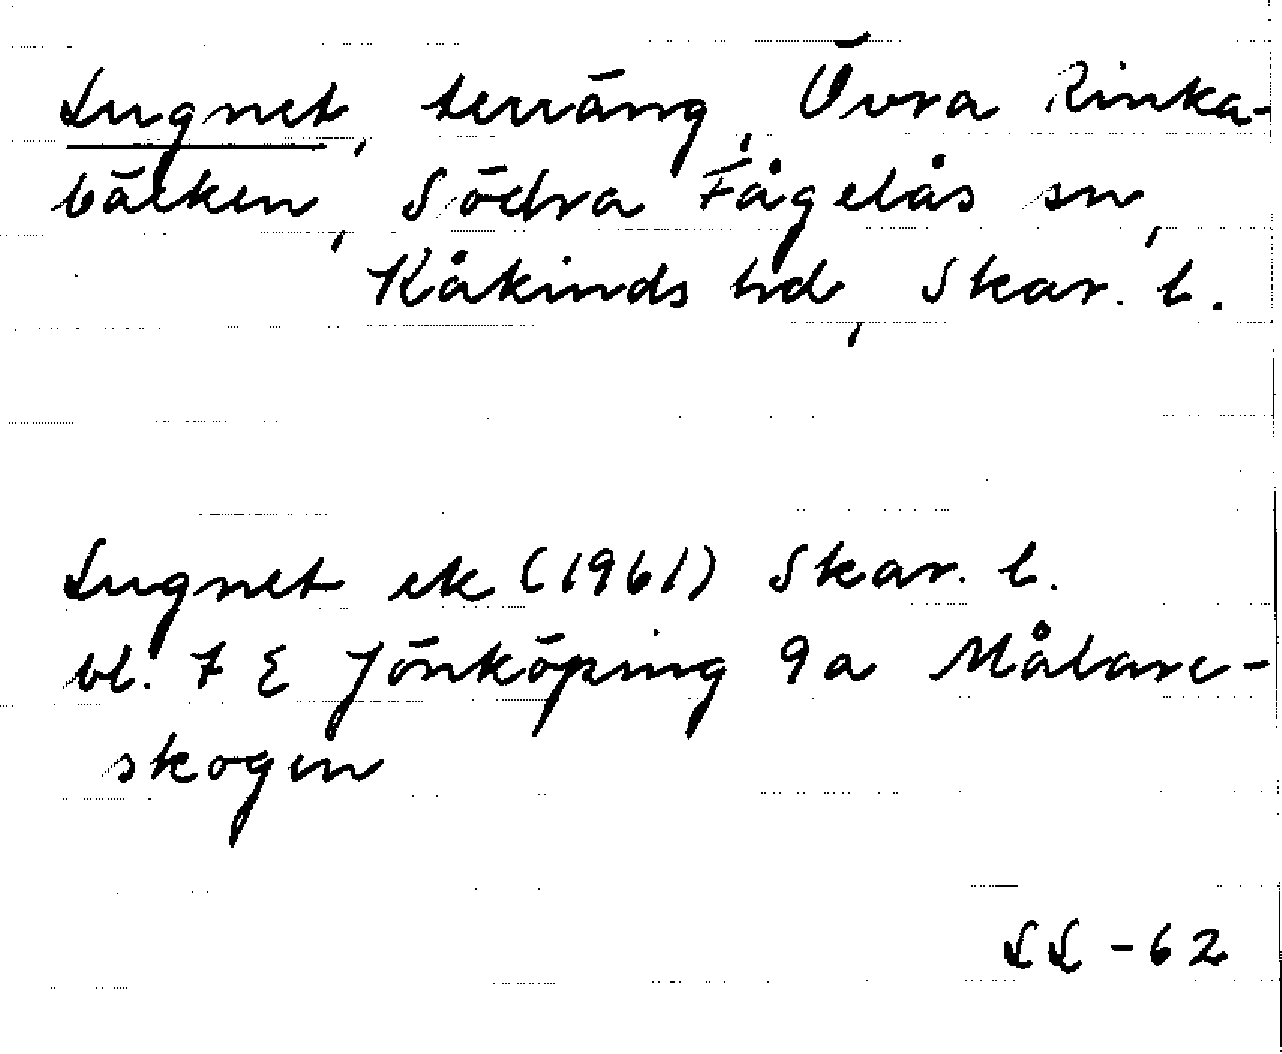 Lugnet, terräng, Övra Rinka-
bäcken, Södra Fågelås sn,
Kåkinds hd, Skar. l.
Lugnet ek (1961) Skar. l.
bl. 7 E Jönköping 9a Målare-
skogen
LL -62